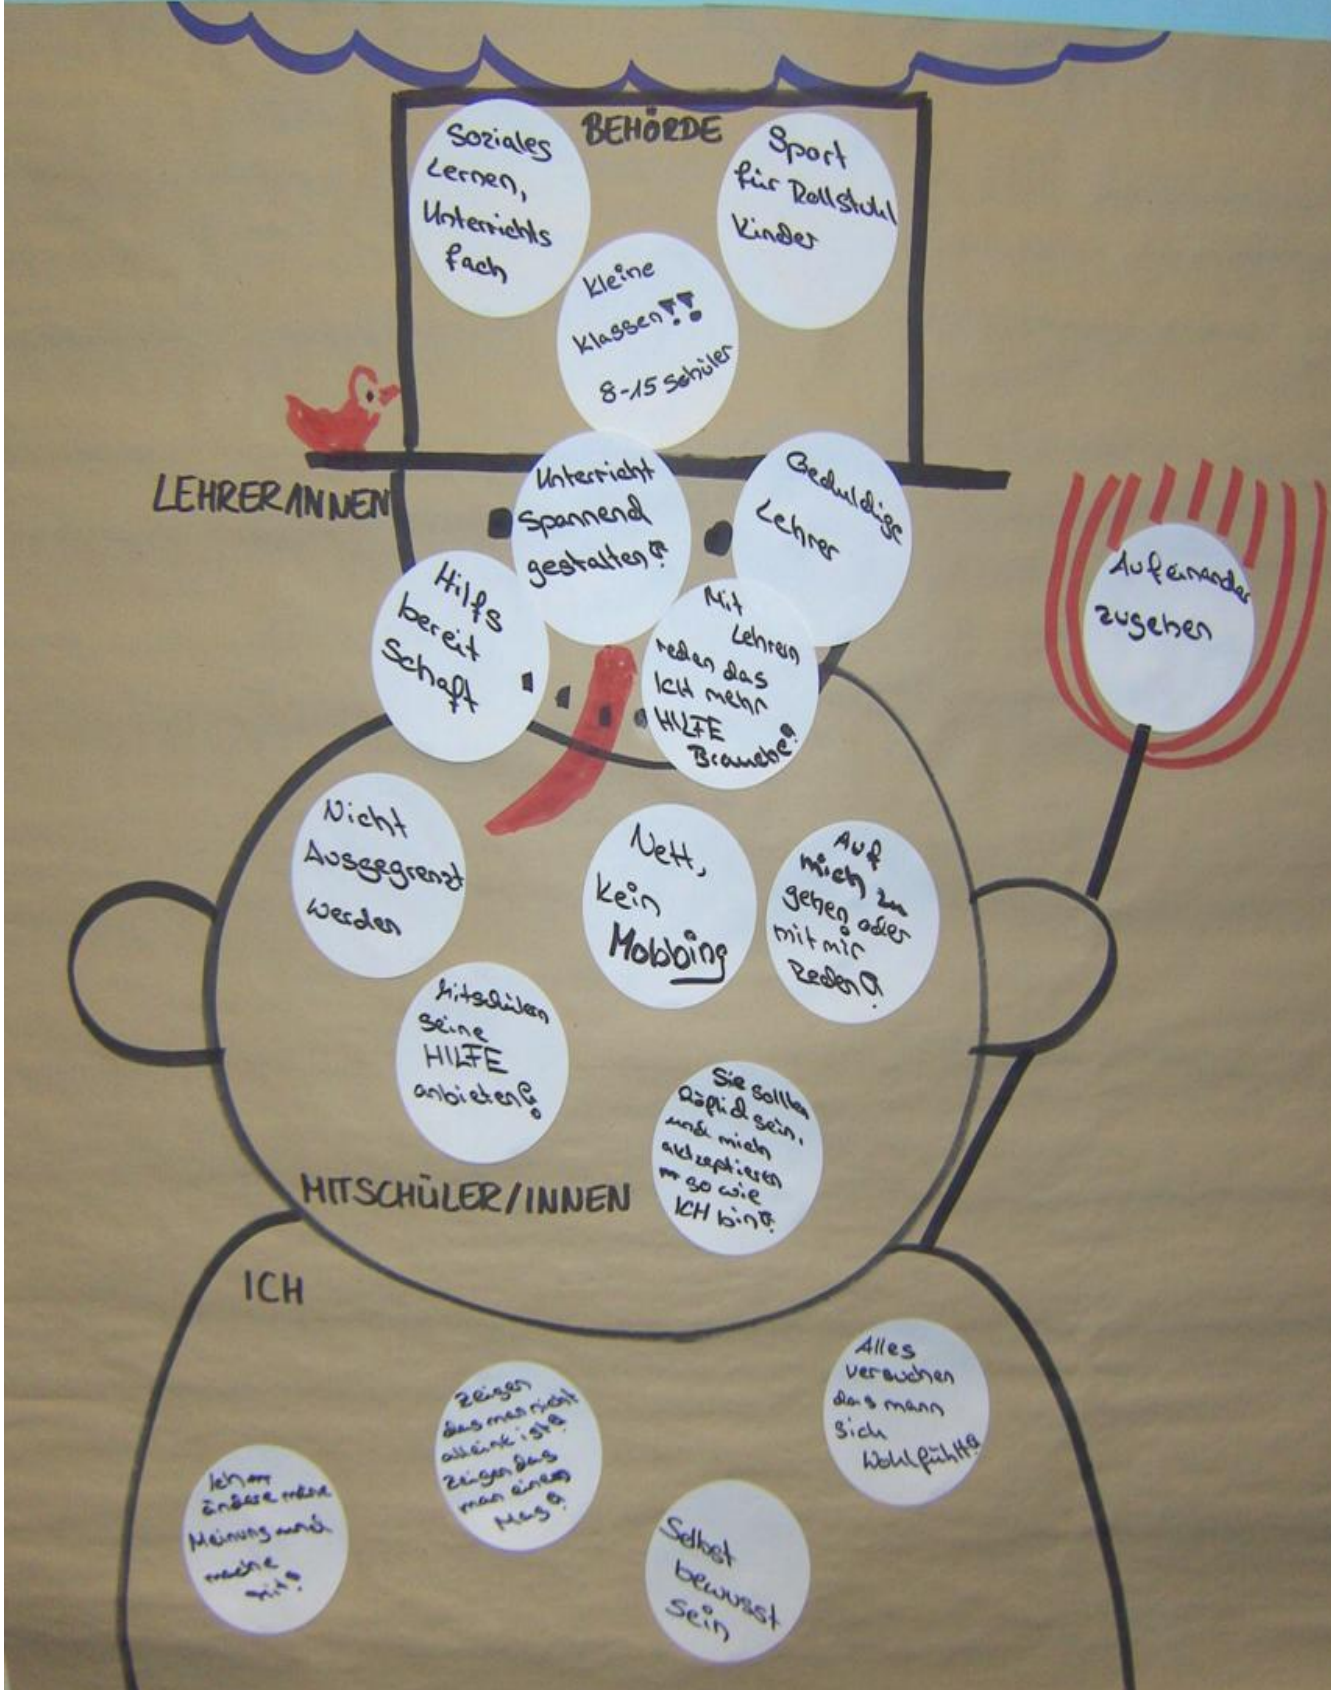 BEHÖRDE
Soziales
Lernen,
Unterrichts
fach
Sport
für Rollstuhl
Kinder
Kleine
Klassen!!
8-15 Schüler
LEHRER/INNEN
Unterricht
Spannend
gestalten!
Geduldige
Lehrer
Hilfs
bereit
Schaft
Mit
Lehrern
reden das
ICH mehr
HILFE
Brauche!
Aufeinander
zugehen
Nicht
Ausgegrenzt
werden
Nett,
kein
Mobbing
Auf
mich zu
gehen oder
mit mir
Reden!
Mitschülern
seine
HILFE
anbieten!
Sie sollten
höflich sein,
und mich
aktzeptieren
so wie
ICH bin!
MITSCHÜLER/INNEN
ICH
Alles
versuchen
das mann
sich
Wohlfühlt!
Zeigen
das man nicht
alleine ist!
Zeigen das
man einen
Mag!
Ich
ändere meine
Meinung und
mache
mit!
Selbst
bewusst
sein